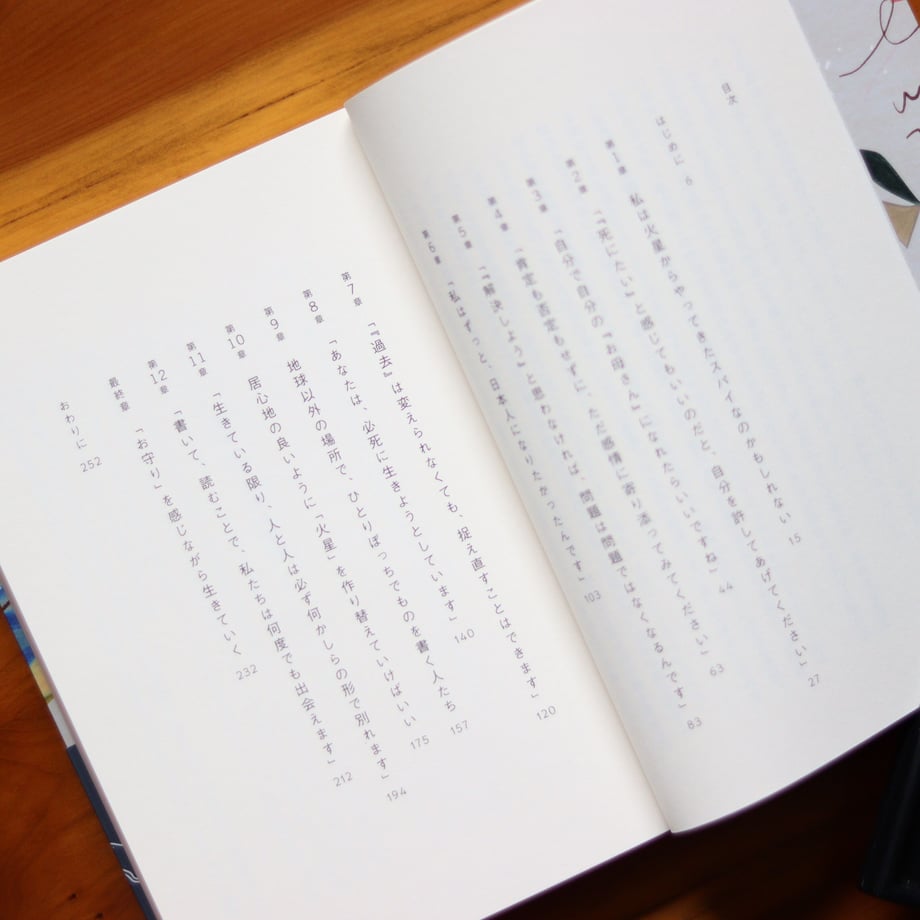 目次
はじめに 6
第1章 私は火星からやってきたスパイなのかもしれない 15
第2章 「『死にたい』と感じてもいいのだと、自分を許してあげてください」 27
第3章 「自分で自分の『お母さん』になれたらいいですね」 44
第4章 「肯定も否定もせずに、ただ感情に寄り添ってみてください」 63
第5章 「『解決しよう』と思わなければ、問題は問題ではなくなるんです」 83
第6章 「私はずっと、日本人になりたかったんです」 103
第7章 「『過去』は変えられなくても、捉え直すことはできます」 120
第8章 「あなたは、必死に生きようとしています」 140
第9章 地球以外の場所で、ひとりぼっちでものを書く人たち 157
第10章 居心地の良いように「火星」を作り替えていけばいい 175
第11章 「生きている限り、人と人は必ず何かしらの形で別れます」 194
第12章 「書いて、読むことで、私たちは何度でも出会えます」 212
最終章 「お守り」を感じながら生きていく 232
おわりに 252